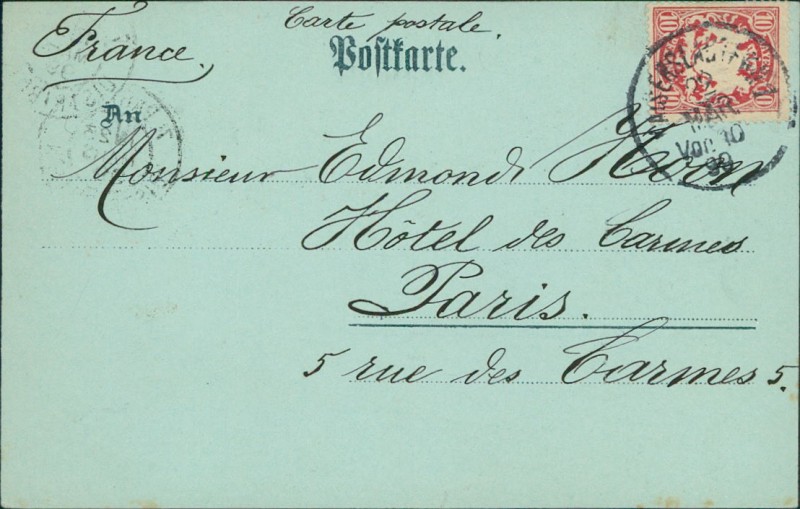 Carte postale.
France.
Postkarte.
An
Monsieur Edmond
Hôtel des Carmes
Paris.
5 rue des Carmes 5.
10 10
MAR
99